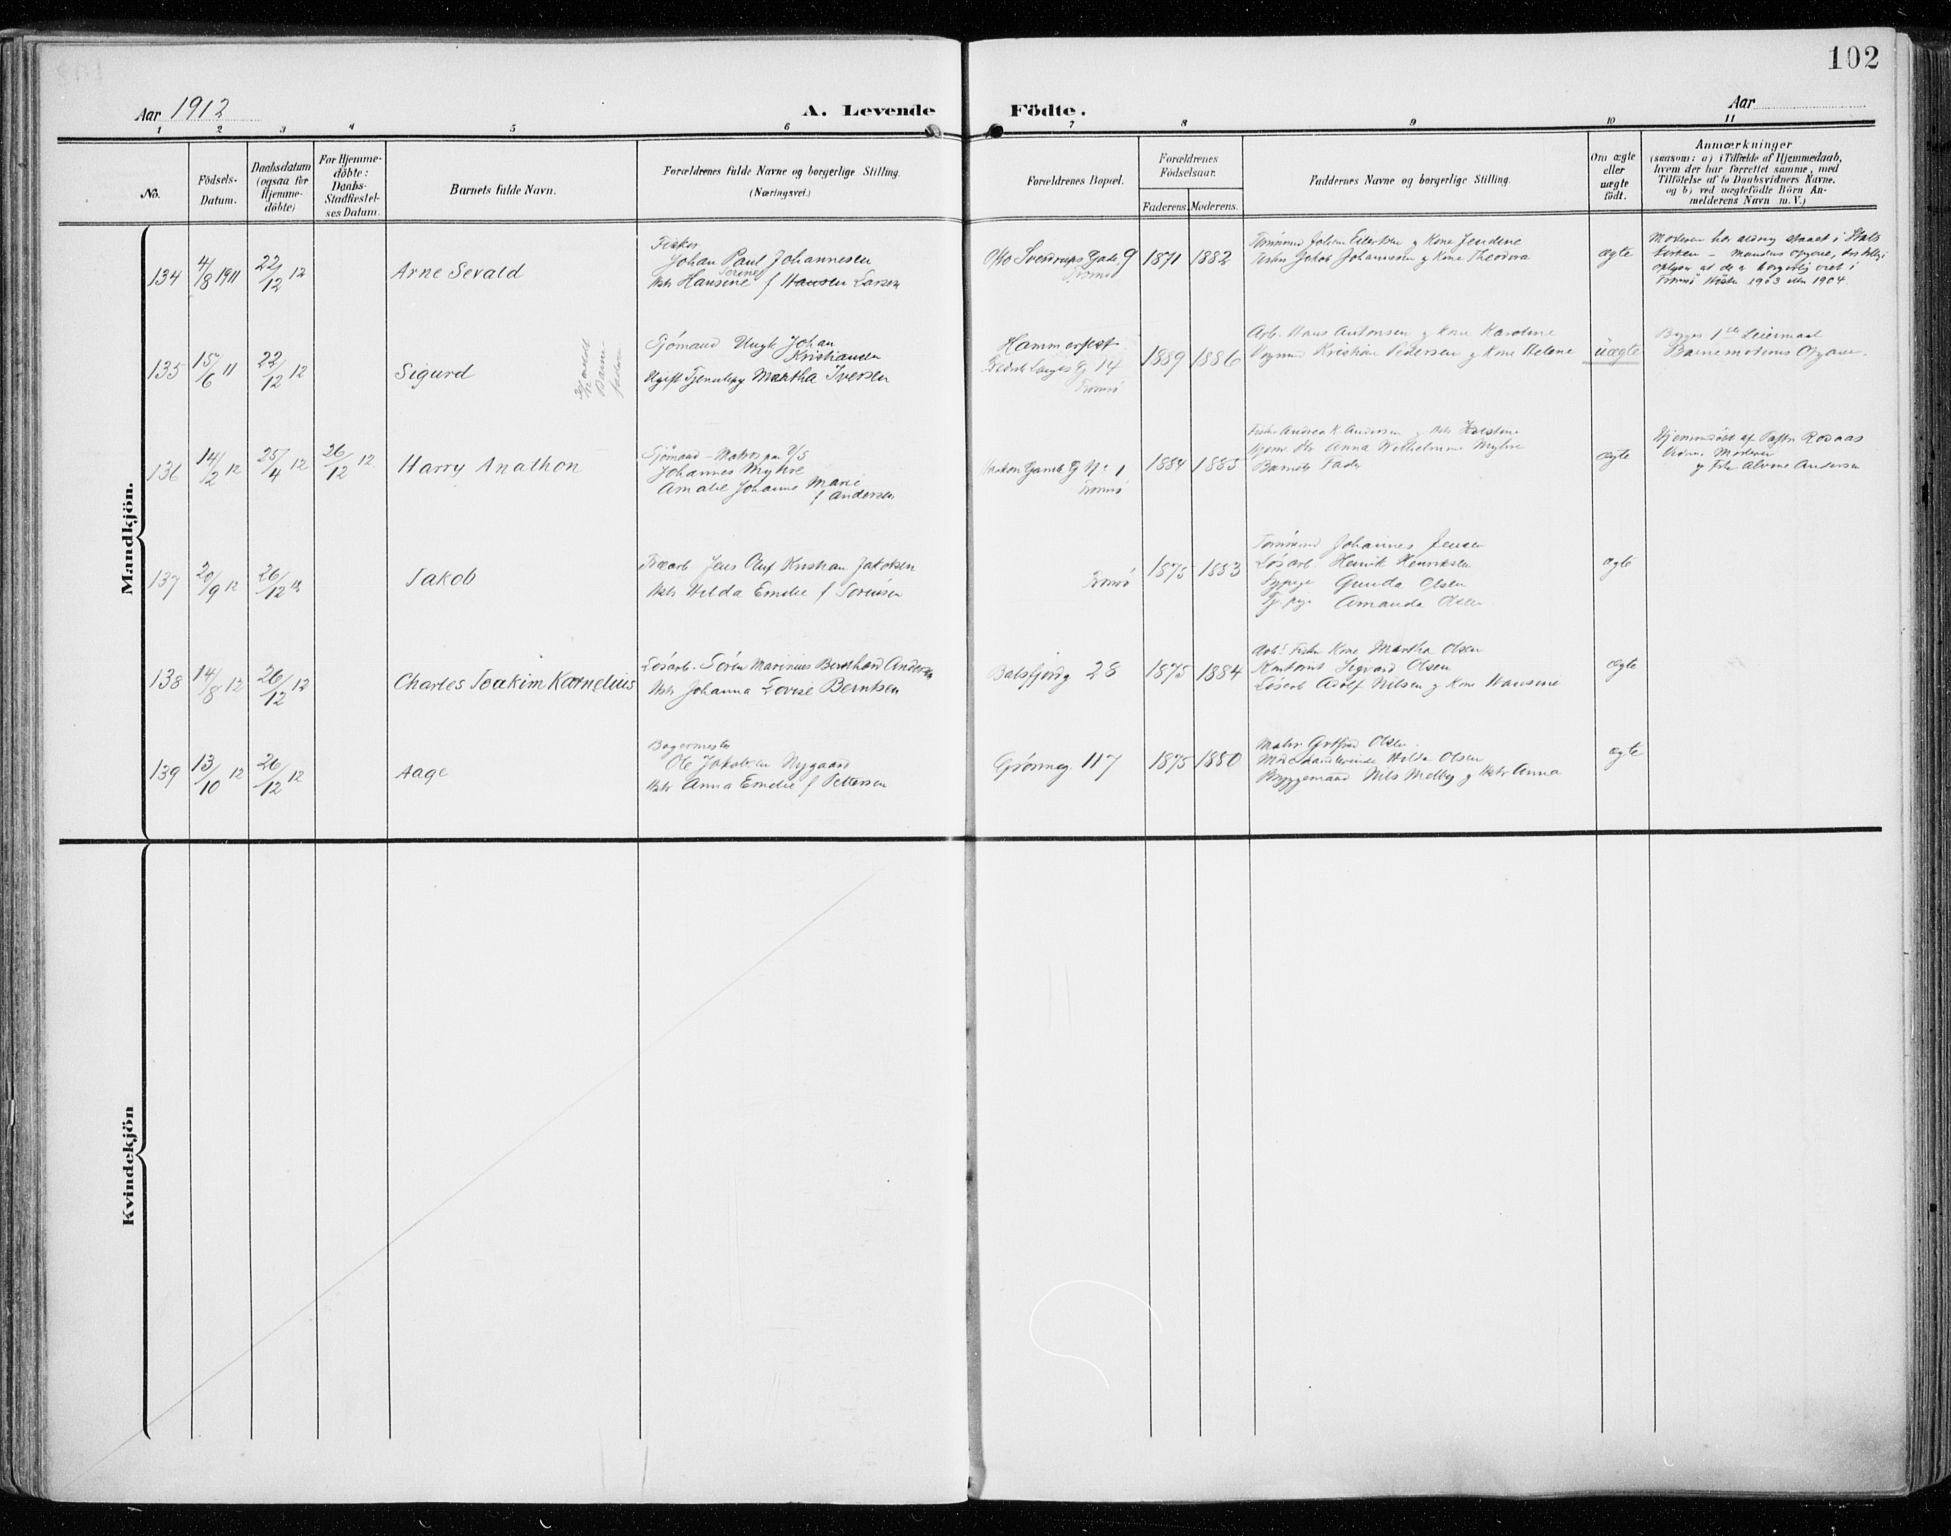 102
Aar 1912
A. Levende Födte.
Aar
1 2 3 4 5 6 7 8 9 10 11
No.
Födsels-
Datum.
Daabsdatum
(ogsaa for
Hjemme-
döbte)
For Hjemme-
döbte:
Daabs-
Stadfæstel-
ses Datum.
Barnets fulde Navn.
Forældrenes fulde Navne og borgerlige Stilling.
(Næringsvei.)
Forældrenes Bopæl.
Forældrenes
Födselsaar.
Faderens. Moderens.
Faddernes Navne og borgerlige Stilling.
Om ægte
eller
uægte
födt.
Anmærkninger
(saasom: a) i Tilfælde af Hjemmedaab,
hvem der har forrettet samme, med
Tilföielse af to Daabsvidners Navne.
og b) ved uægtefödte Börn An-
melderens Navn m. V.)
Mandkjön.
134
4/8 1911
22/12 12
Arne Sevald
Fisker
Johan Paul Johannesen
Serine
Hansine f Hansen Larsen
Otto Sverdrups Gade 9
Tromsø
1871 1882
Johan Eilertsen g Kone Jendine
Jakob Johannesen g Kone Theodora
ægte
Moderen har aldrig staaet i Stats
kirken - Mandens Opgave,
oplyser at de er borgerlig viet i
Tromsø Høsten 1903 eller 1904.
135
15/6 11
22/12 12
Sigurd
Barne-
faderen
Sjømand Ungk Johan
Kristiansen
Ugift Tjenestepg Martha Iversen
Hammerfest
Fredrik Langes G 14
Tromsø
1889 1886
Arb. Hans Antonsen g Kone Karoline
Kristian Pedersen g Kone Helene
uægte
Begges 1ste Leiermaal
Barnemoderens Opgave.
136
14/2 12
25/4 12
26/12 12
Harry Anathon
Sjømand - Matros paa D/S
Johannes Myhre
Amalie Johanne Marie
f Andersen
G No 1
Tromsø
1884 1885
Andreas K. Andersen g
Anna Wilhelmine Myhre
Barnets Fader
ægte
Hjemmedøbt af Pastor Rosaas
Vidn. Moderen
g Alvine Andersen
137
20/9 12
26/12 12
Jakob
Jens Oluf Kristian Jakobsen
Hilda Emelie f Sørensen
Tromsø
1875 1883
Johannes Jensen
Løsarb Henrik Henriksen
Sypige Gunda Olsen
Tj. pige Amanda Olsen
ægte
138
14/8 12
26/12 12
Charles Joakim Kornelius
Løsarb. Søren Marinius Bernthard Andersen
Johanna Lovise Berntsen
Balsfjordg 28
1875 1884
Kone Martha Olsen
Kontorist Sigvard Olsen
Løsarb Adolf Nilsen g Kone Hansine
ægte
139
13/10 12
26/12 12
Aage
Bagermester
Ole Jakobsen Nygaard
Anna Emelie f Pettersen
Grønneg 117
1875 1880
Olsen
Hilda Olsen
Bryggemand Nils Melby g Anna
ægte
Kvindekjön